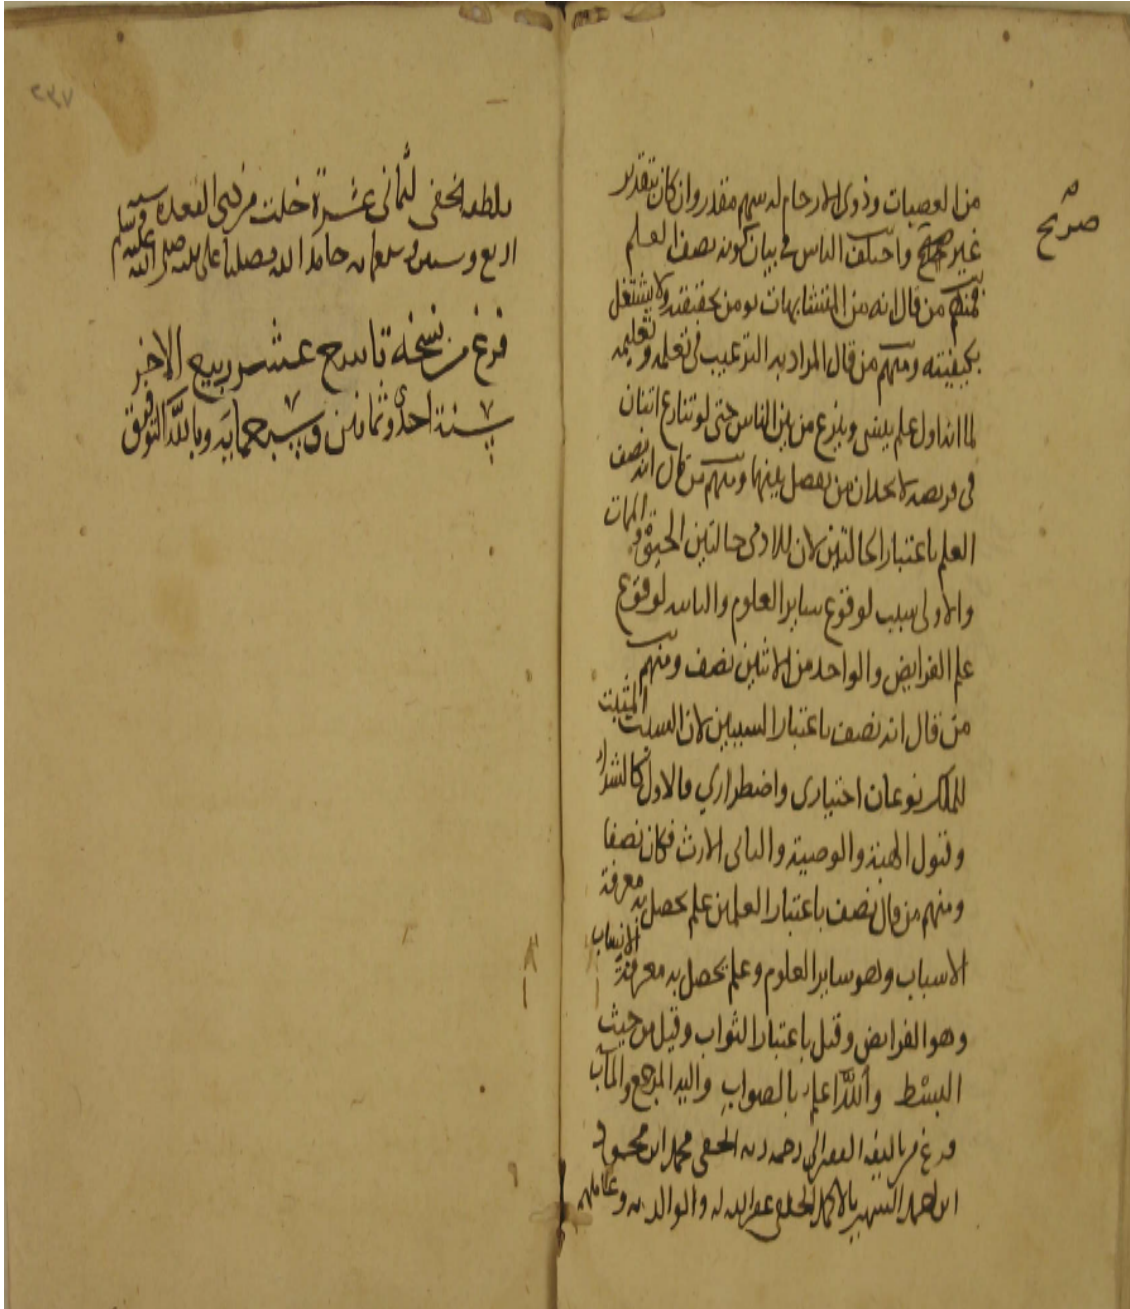 من العصبات وذوى الارحام له سهم مقدر وان كان بتقدير
صريح
غير صريح واختلف الناس في بيان كونه نصف العلم
فمنهم من قال انه من المتشابهات نومن بحقيقته ولا يشتغل
بكيفيته ومنهم من قال المراد به الترغيب فى تعلمه وتعليمه
لما انه اول علم ينسى وينزع من بين الناس حتى لو تنازع اثنان
فى فريضة لا يجدان من يفصل بينهما ومنهم من قال انه نصف
العلم باعتبار الحالتين لان للادمى حالتين الحيوة والممات
والاولى سبب لوقوع ساير العلوم والثانيه لوقوع
علم الفرايض والواحد من الاثنين نصف ومنهم
من قال انه نصف باعتبار السببين لان السبب المثبت
للملك نوعان اختيارى واضطراري فالاول كالشراء
وقبول الهبة والوصية والثانى الارث فكان نصفا
ومنهم من قال نصف باعتبار العلمين علم يحصل به معرفة
الاسباب وهو ساير العلوم وعلم يحصل به معرفة الانساب
وهو الفرايض وقيل باعتبار الثواب وقيل من حيث
البسط والله اعلم بالصواب واليه المرجع والمآب
فرغ من تاليفه الفقير الى رحمة ربه الحفى محمد ابن محمود
ابن احمد الشهير بالاكمل الحنفى عفا الله له ولوالديه وعاملهم
بلطفه الخفى لثمانى عشرة خلت من ذى القعده سنه
اربع وستين وسبعمايه حامدا لله ومصليا على نبيه صلى الله عليه وسلم
فرغ من نسخه تاسع عشر ربيع الاخر
سنة احدى وثمانين وسبعمايه وبالله التوفيق
٢٣٧